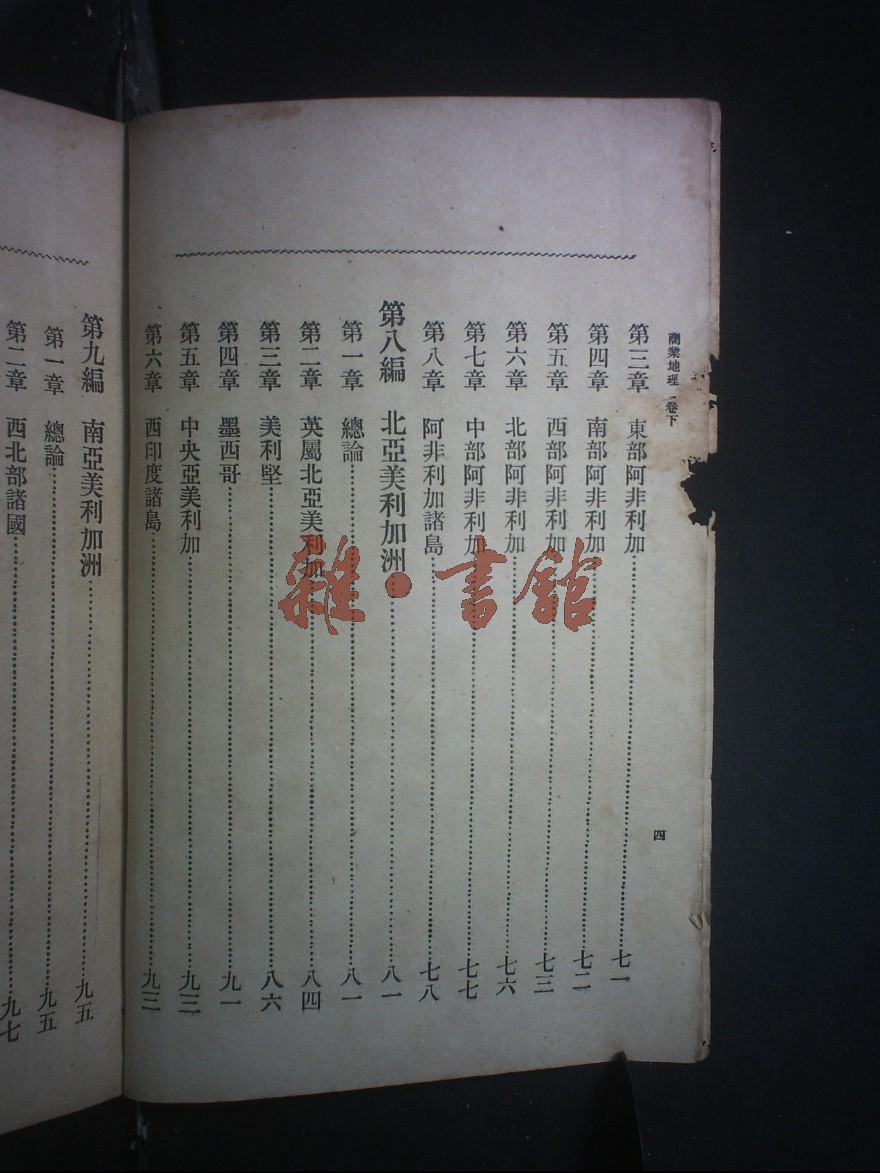 商業地理 卷下
四
第三章 東部阿非利加 七一
第四章 南部阿非利加 七二
第五章 西部阿非利加 七三
第六章 北部阿非利加 七六
第七章 中部阿非利加 七七
第八章 阿非利加諸島 七八
第八編 北亞美利加洲 八一
第一章 總論 八一
第二章 英屬北亞美利加 八四
第三章 美利堅 八六
第四章 墨西哥 九一
第五章 中央亞美利加 九三
第六章 西印度諸島 九三
第九編 南亞美利加洲 九五
第一章 總論 九五
第二章 西北部諸國 九七
雜·書館